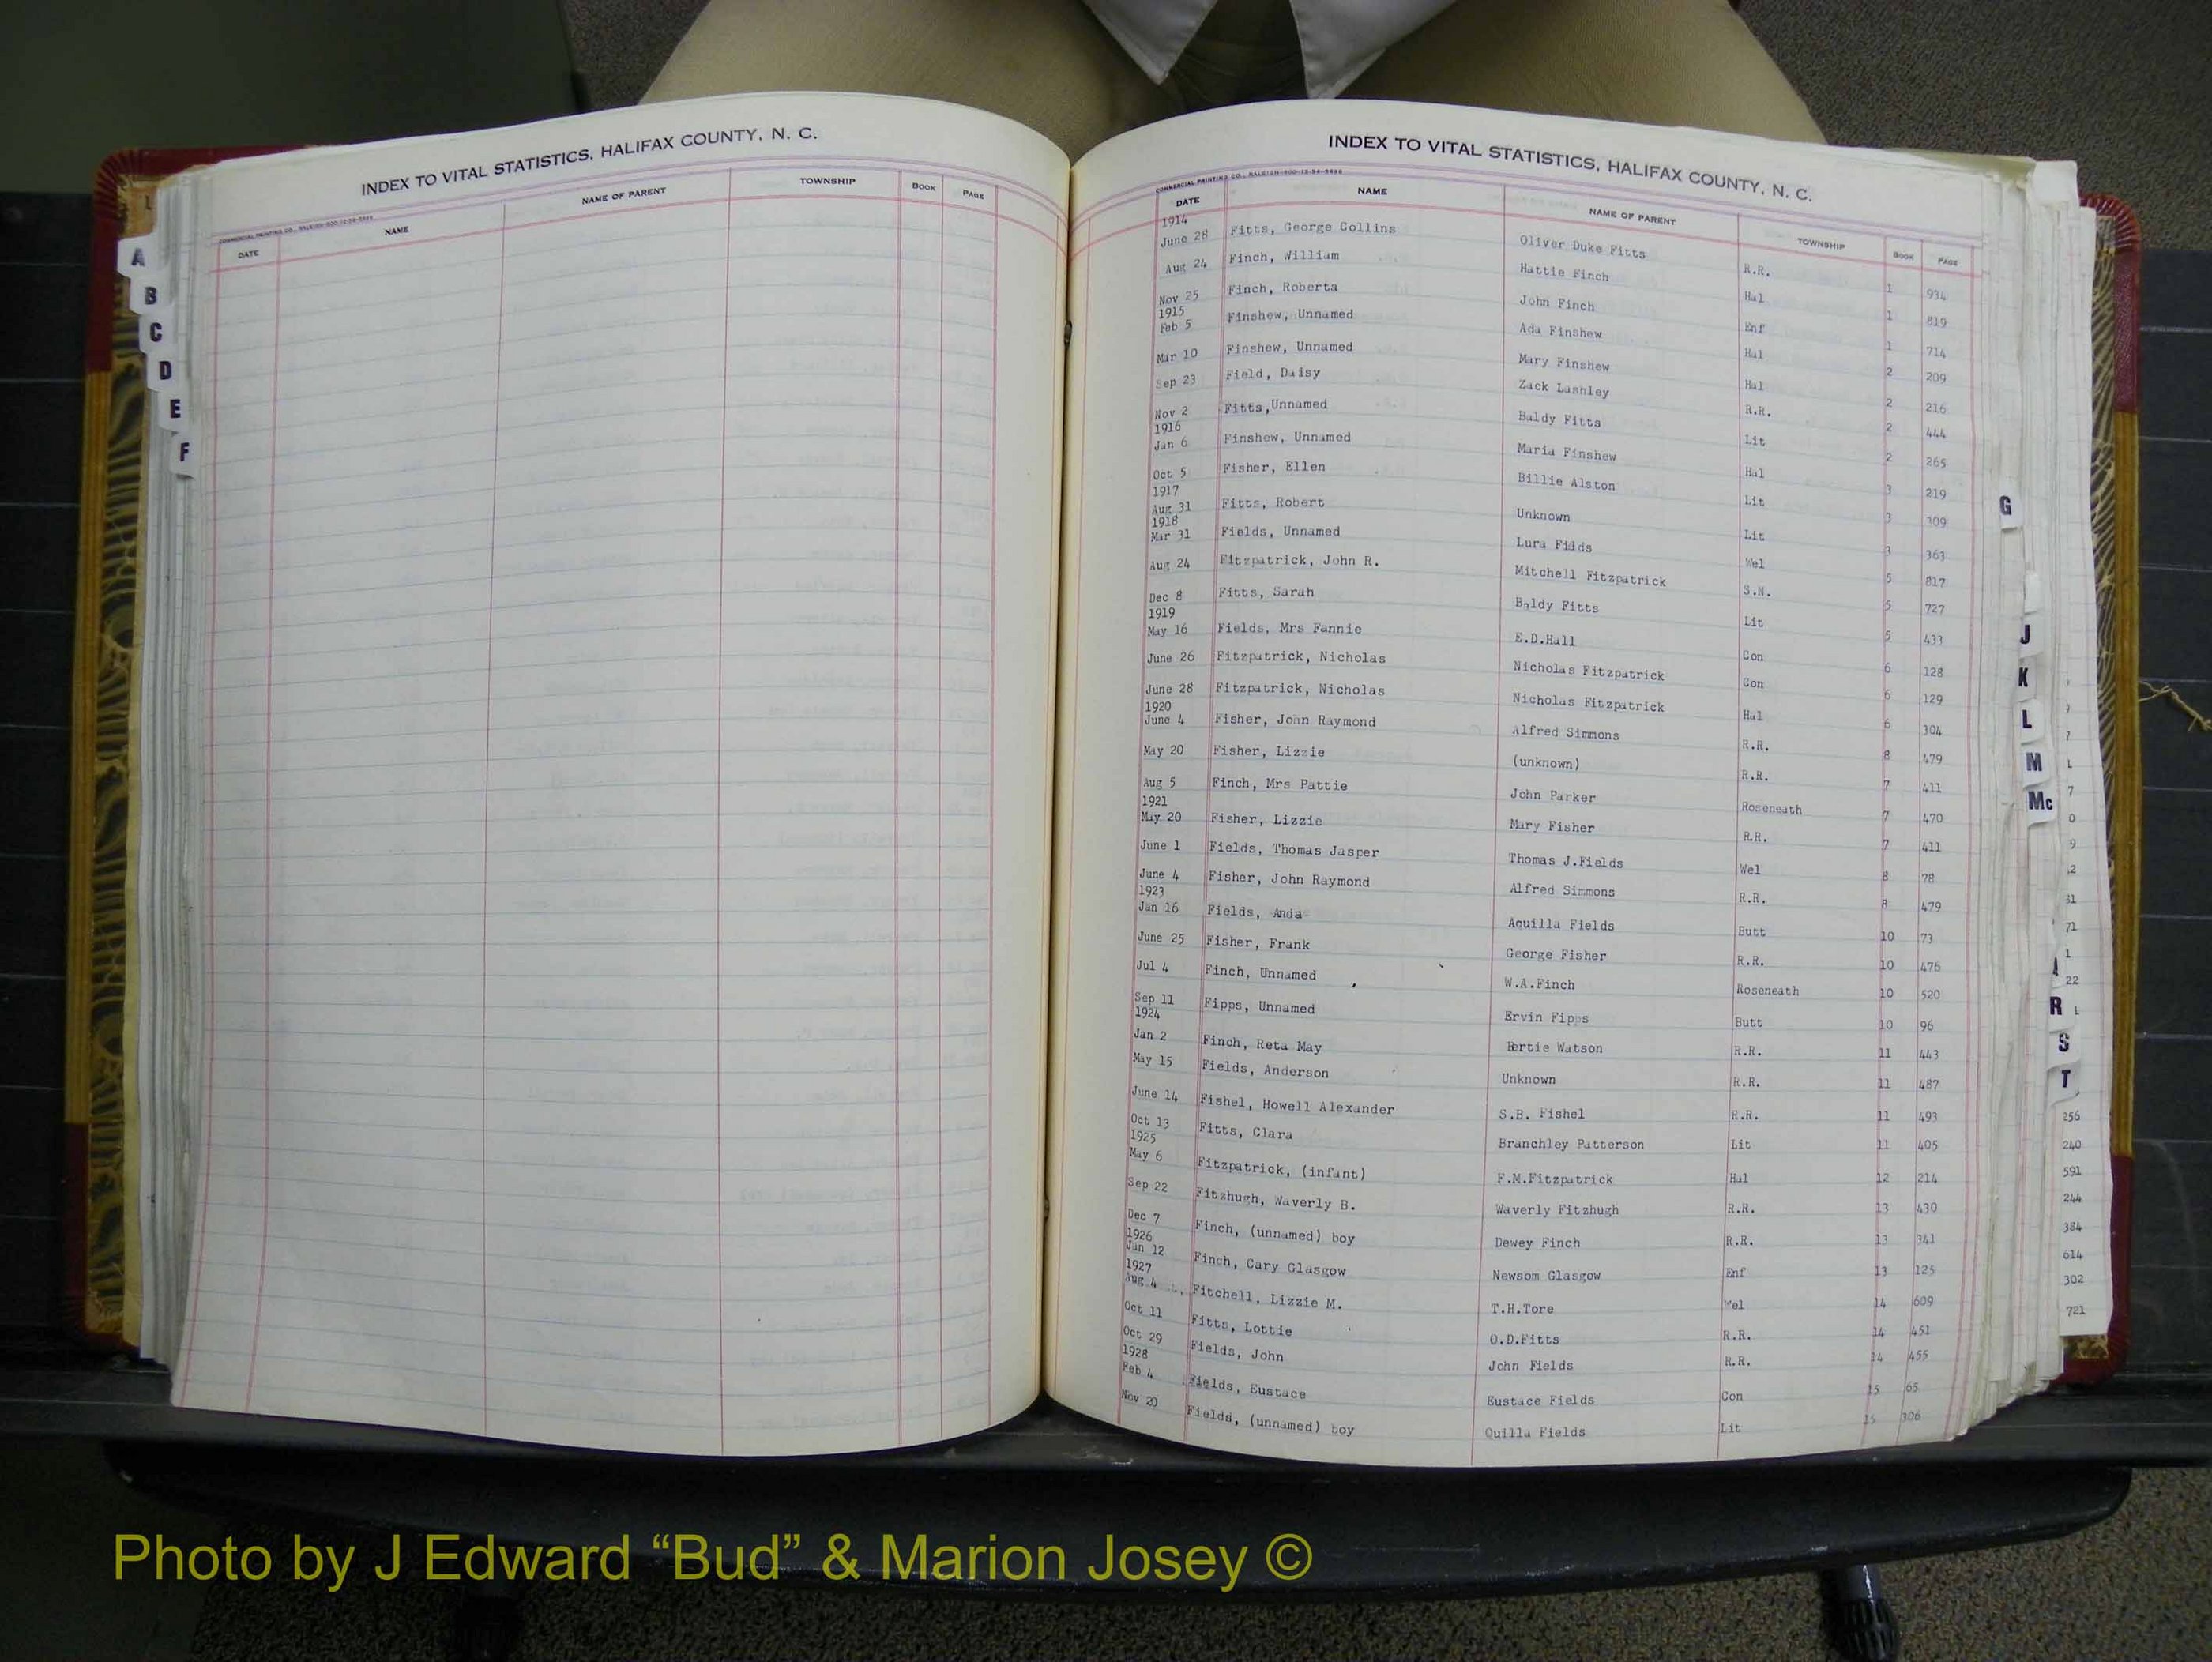 INDEX TO VITAL STATISTICS, HALIFAX COUNTY, N. C.
COMMERCIAL PRINTING CO., RALEIGH-600-12-54-5696
DATE NAME NAME OF PARENT TOWNSHIP BOOK PAGE
A
B
C
D
E
F
INDEX TO VITAL STATISTICS, HALIFAX COUNTY, N. C.
COMMERCIAL PRINTING CO., RALEIGH-600-12-54-5696
DATE NAME NAME OF PARENT TOWNSHIP BOOK PAGE
1914
June 28 Fitts, George Collins Oliver Duke Fitts R.R. 1 934
Aug 24 Finch, William Hattie Finch Hal 1 819
Nov 25 Finch, Roberta John Finch Enf 1 714
1915
Feb 5 Finshew, Unnamed Ada Finshew Hal 2 209
Mar 10 Finshew, Unnamed Mary Finshew Hal 2 216
Sep 23 Field, Daisy Zack Lashley R.R. 2 444
Nov 2 Fitts,Unnamed Baldy Fitts Lit 2 265
1916
Jan 6 Finshew, Unnamed Maria Finshew Hal 3 219
Oct 5 Fisher, Ellen Billie Alston Lit 3 109
1917
Aug 31 Fitts, Robert Unknown Lit 3 363
1918
Mar 31 Fields, Unnamed Lura Fields Wel 5 817
Aug 24 Fitzpatrick, John R. Mitchell Fitzpatrick S.N. 5 727
Dec 8 Fitts, Sarah Baldy Fitts Lit 5 433
1919
May 16 Fields, Mrs Fannie E.D.Hall Con 6 128
June 26 Fitzpatrick, Nicholas Nicholas Fitzpatrick Con 6 129
June 28 Fitzpatrick, Nicholas Nicholas Fitzpatrick Hal 6 304
1920
June 4 Fisher, John Raymond Alfred Simmons R.R. 8 479
May 20 Fisher, Lizzie (unknown) R.R. 7 411
Aug 5 Finch, Mrs Pattie John Parker Roseneath 7 470
1921
May 20 Fisher, Lizzie Mary Fisher R.R. 7 411
June 1 Fields, Thomas Jasper Thomas J.Fields Wel 8 78
June 4 Fisher, John Raymond Alfred Simmons R.R. 8 479
1923
Jan 16 Fields, Anda Aquilla Fields Butt 10 73
June 25 Fisher, Frank George Fisher R.R. 10 476
Jul 4 Finch, Unnamed W.A.Finch Roseneath 10 520
Sep 11 Fipps, Unnamed Ervin Fipps Butt 10 96
1924
Jan 2 Finch, Reta May Bertie Watson R.R. 11 443
May 15 Fields, Anderson Unknown R.R. 11 487
June 14 Fishel, Howell Alexander S.B. Fishel R.R. 11 493
Oct 13 Fitts, Clara Branchley Patterson Lit 11 405
1925
May 6 Fitzpatrick, (infant) F.M.Fitzpatrick Hal 12 214
Sep 22 Fitzhugh, Waverly B. Waverly Fitzhugh R.R. 13 430
Dec 7 Finch, (unnamed) boy Dewey Finch R.R. 13 341
1926
Jan 12 Finch, Cary Glasgow Newsom Glasgow Enf 13 125
1927
Aug 4 Fitchell, Lizzie M. T.H.Tore Wel 14 609
Oct 11 Fitts, Lottie O.D.Fitts R.R. 14 451
Oct 29 Fields, John John Fields R.R. 14 455
1928
Feb 4 Fields, Eustace Eustace Fields Con 15 65
Nov 20 Fields, (unnamed) boy Quilla Fields Lit 15 306
G
J
K
L
M
Mc
R
S
T
256
240
591
244
384
614
302
721
Photo by J Edward “Bud” & Marion Josey ©